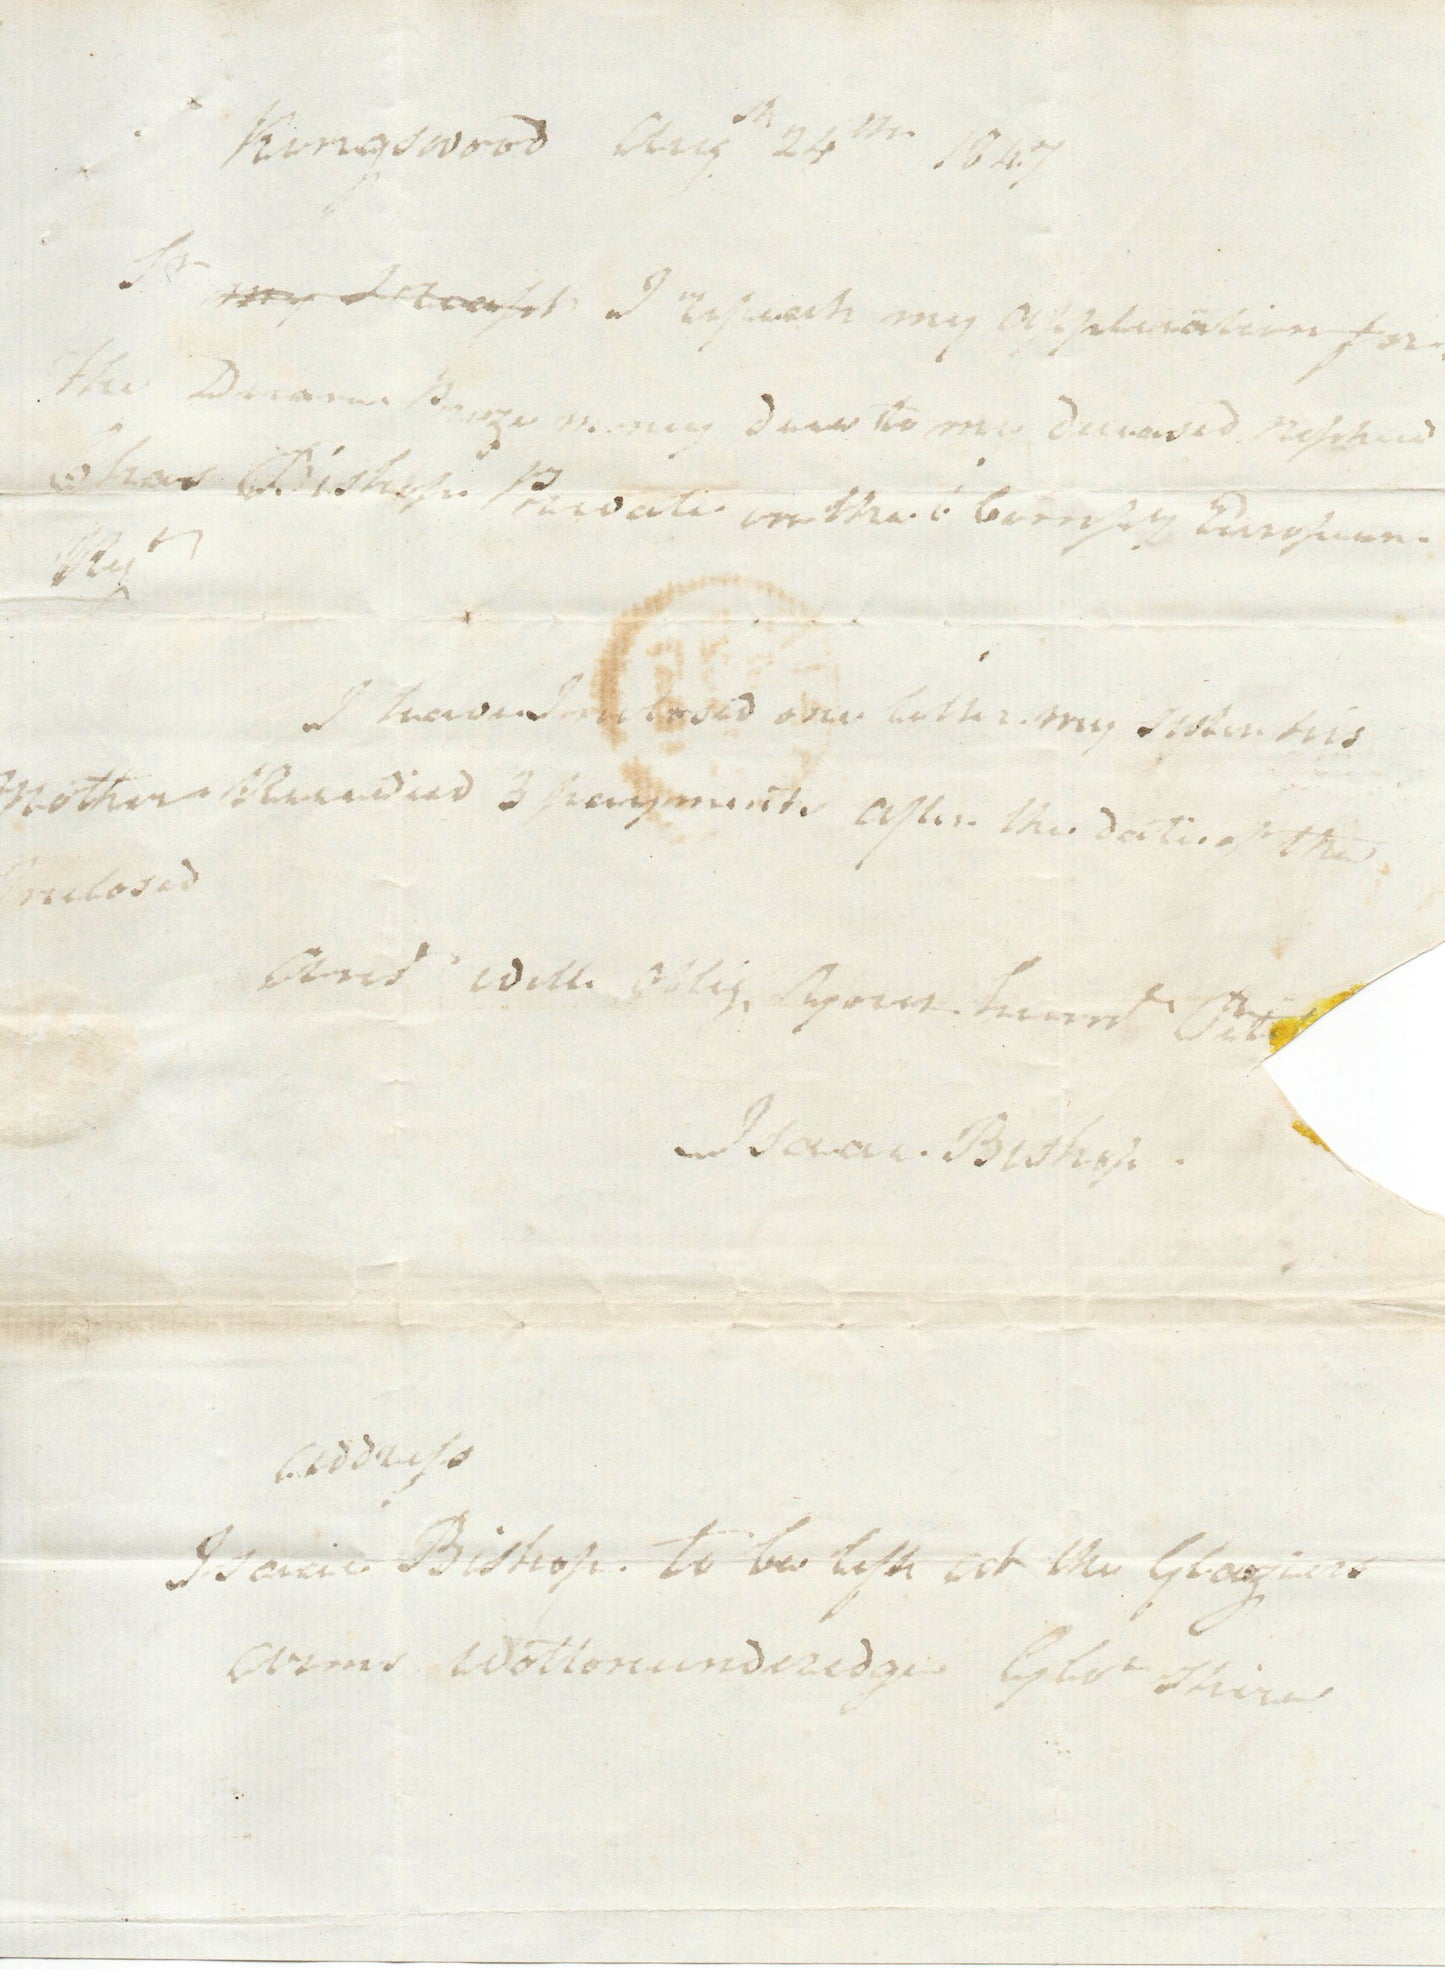 Kingswood Augst 24th 1847
Sr my I repeat my application for
the Deccan Prize money due to my deceased nephew
Chas Bishop Private in the 1 Bombay European
Regt
I have Inclosed one letter my sister his
Mother Received 3 payments after the date of the
Inclosed
Ansr will oblig your humbe
Isaac Bishop
address
Isaac Bishop to be left at the Glaziers
arms Wottonunderedge Glor Shire